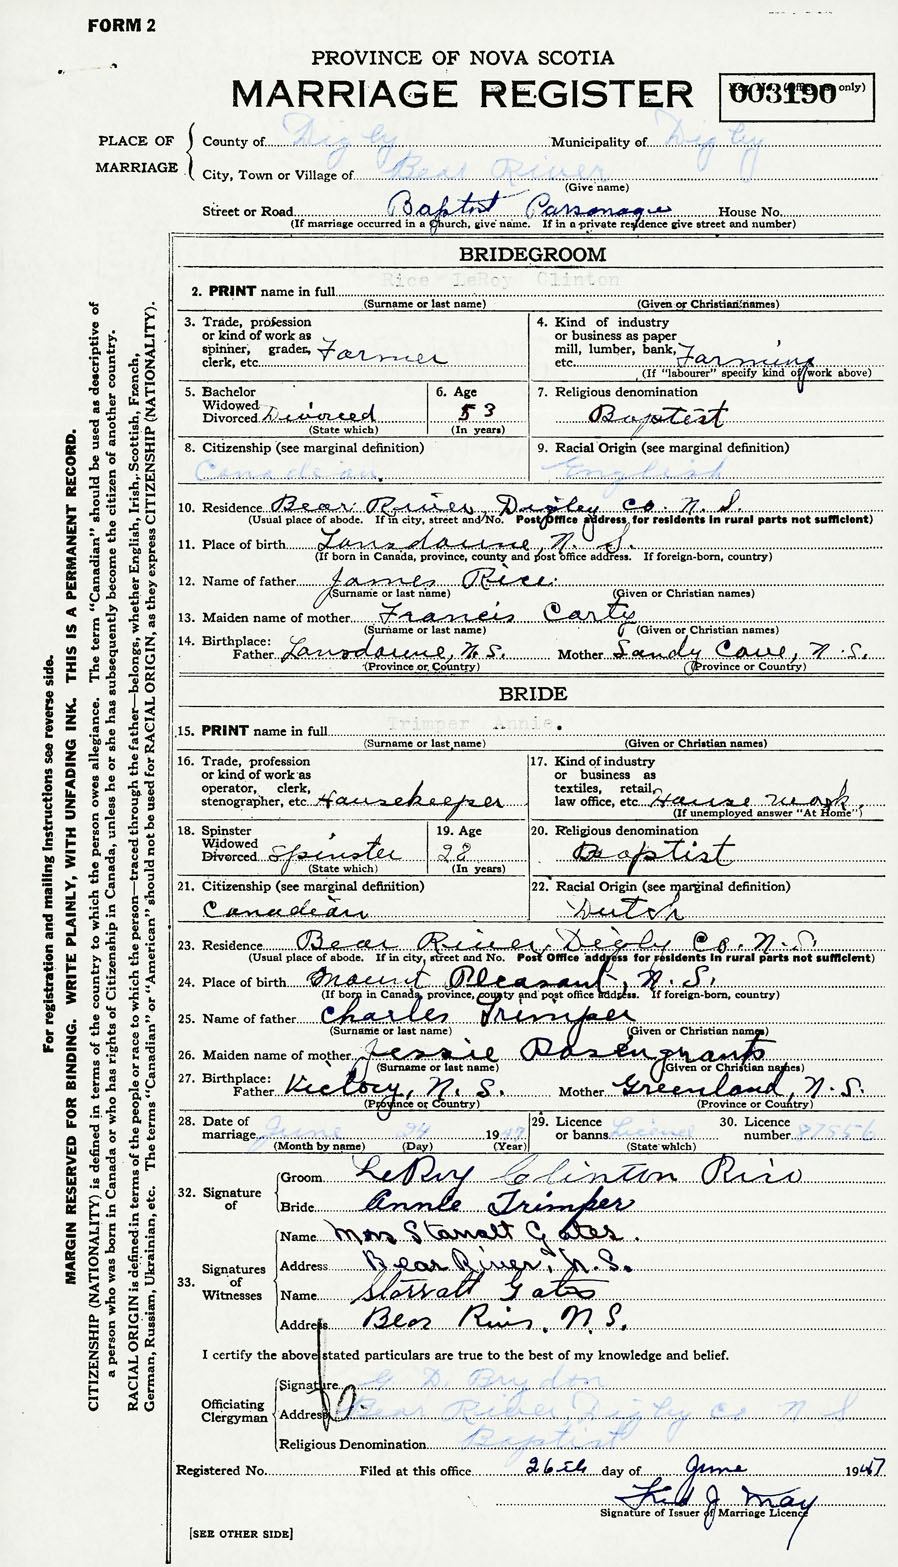 FORM 2
PROVINCE OF NOVA SCOTIA
MARRIAGE REGISTER
003190
PLACE OF MARRIAGE
County of Digby Municipality of Digby
City, Town or Village of Bear River
(Give name)
Street or Road Baptist Parsonage House No.
(If marriage occurred in a Church, give name. If in a private residence give street and number)
BRIDEGROOM
2. PRINT name in full Rice LeRoy Clinton
(Surname or last name) (Given or Christian names)
3. Trade, profession or kind of work as spinner, grader, clerk, etc. Farmer
4. Kind of industry or business as paper mill, lumber, bank, etc. Farming
(If "labourer" specify kind of work above)
5. Bachelor Widowed Divorced Divorced
(State which)
6. Age 53
(In years)
7. Religious denomination
Baptist
8. Citizenship (see marginal definition)
Canadian
9. Racial Origin (see marginal definition)
English
10. Residence Bear River, Digby Co. N. S.
(Usual place of abode. If in city, street and No. Post Office address for residents in rural parts not sufficient)
11. Place of birth Lansdowne, N. S.
(If born in Canada, province, county and post office address. If foreign-born, country)
12. Name of father James Rice
(Surname or last name) (Given or Christian names)
13. Maiden name of mother Francis Carty
(Surname or last name) (Given or Christian names)
14. Birthplace: Father Lansdowne, N.S. Mother Sandy Cove, N.S.
(Province or Country) (Province or Country)
BRIDE
15. PRINT name in full Trimper Annie.
(Surname or last name) (Given or Christian names)
16. Trade, profession or kind of work as operator, clerk, stenographer, etc. Housekeeper
17. Kind of industry or business as textiles, retail, law office, etc. House work.
(If unemployed answer "At Home")
18. Spinster Widowed Divorced Spinster
(State which)
19. Age 28
(In years)
20. Religious denomination
Baptist
21. Citizenship (see marginal definition)
Canadian
22. Racial Origin (see marginal definition)
Dutch
23. Residence Bear River, Digby Co. N.S.
(Usual place of abode. If in city, street and No. Post Office address for residents in rural parts not sufficient)
24. Place of birth Mount Pleasant, N.S.
(If born in Canada, province, county and post office address. If foreign-born, country)
25. Name of father Charles Trimper
(Surname or last name) (Given or Christian names)
26. Maiden name of mother Jessie Rosengrants
(Surname or last name) (Given or Christian names)
27. Birthplace: Father Victory, N.S. Mother Greenland, N.S.
(Province or Country) (Province or Country)
28. Date of marriage June 24 1947
(Month by name) (Day) (Year)
29. Licence or banns License
(State which)
30. Licence number 87556
32. Signature of
Groom LeRoy Clinton Rice
Bride Annie Trimper
33. Signatures of Witnesses
Name Mrs Starratt Gates.
Address Bear River, N.S.
Name Starratt Gates
Address Bear River, N.S.
I certify the above stated particulars are true to the best of my knowledge and belief.
Officiating Clergyman
Signature G. D. Brydon
Address Bear River Digby Co N S
Religious Denomination Baptist
Registered No. Filed at this office 26th day of June 1947
Fred J May
Signature of Issuer of Marriage Licence
[SEE OTHER SIDE]
For registration and mailing instructions see reverse side.
MARGIN RESERVED FOR BINDING. WRITE PLAINLY, WITH UNFADING INK. THIS IS A PERMANENT RECORD.
CITIZENSHIP (NATIONALITY) is defined in terms of the country to which the person owes allegiance. The term "Canadian" should be used as descriptive of
a person who was born in Canada or who has rights of Citizenship in Canada, unless he or she has subsequently become the citizen of another country.
RACIAL ORIGIN is defined in terms of the people or race to which the person—traced through the father—belongs, whether English, Irish, Scottish, French,
German, Russian, Ukrainian, etc. The terms "Canadian" or "American" should not be used for RACIAL ORIGIN, as they express CITIZENSHIP (NATIONALITY).